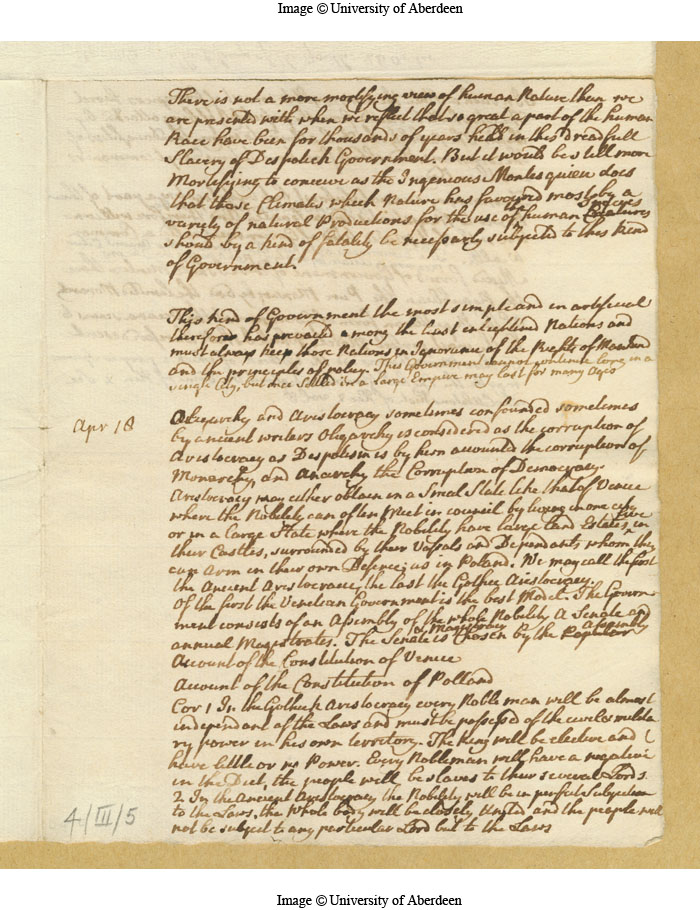 Image © University of Aberdeen
There is not a more mortifying view of human Nature than we
are presented with when we reflect that so great a part of the human
Race have been for thousands of years held in this dreadfull
Slavery of Despotick Government. But it would be still more
Mortifying to conceive as the Ingenious Montesquieu does
that those Climates which Nature has favoured most by a
variety of natural Productions for the use of the human Creatures
should by a kind of fatality be necessarly subjected to this kind
of Government.
This kind of Government the most simple and in artificial
therefore has prevailed among the least enlightned Nations and
must always keep those Nations in Ignorance of the Rights of Mankind
and the principles of policy. This Government cannot continue long in a
single City, but once settled in a large Empire may last for many Ages
Apr 18
Oligarchy and Aristocracy sometimes confounded sometimes
by ancient writers Oligarchy is considered as the corruption of
Aristocracy as Despotism is by them accounted the corruption of
Monarchy, and Anarchy the Corruption of Democracy.
Aristocracy may either obtain in a Small State like that of Venice
where the Nobility can often Meet in council by living in one city
or in a large State where the Nobility have large land Estates, live in
their Castles, surrounded by their Vassals and Dependants whom they
can Arm in their own Defence; as in Poland. We may call the first
the Ancient Aristocracie, the last the Gothic Aristocracy.
Of the first the Venetian Government is the best Model. The Govern
ment consists of an Assembly of the whole Nobility A Senate and
annual Magistrates. The Senate & Magistracy is Chosen by the Popular Assembly
Account of the Constitution of Venice
Account of the Constitution of Polland
Cor 1 In the Gothick Aristocracy every Noble man will be almost
independant of the Laws and must be possessed of the civil & milita
ry power in his own territory. The King will be elective and
have little or no Power. Every Nobleman will have a negative
in the Diet, the people will be slaves to their several Lords.
2 In the Ancient Aristocracy the Nobility will be in perfect Subjection
to the Laws, the whole body will be closely United and the people will
not be subject to any particular Lord but to the Laws
4/III/5
Image © University of Aberdeen